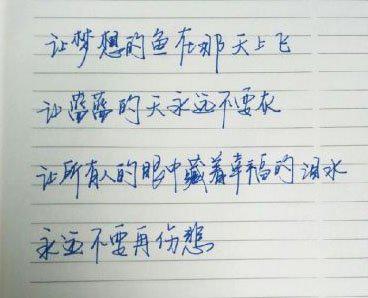 让梦想的鱼在那天上飞
让蓝蓝的天永远不要灰
让所有人的眼中藏着幸福的泪水
永远不要再伤悲